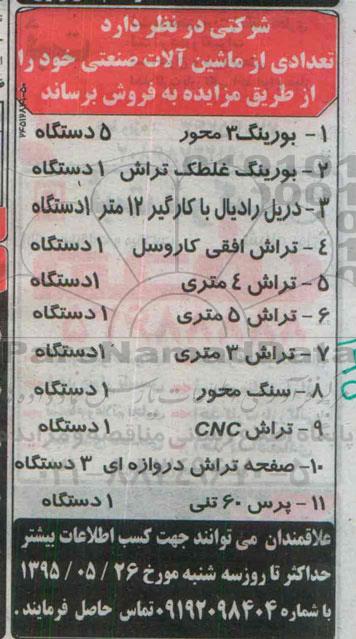 شرکتی در نظر دارد
تعدادی از ماشین آلات صنعتی خود را
از طریق مزایده به فروش برساند
۱- بورینگ۳ محور ۵ دستگاه
۲- بورینگ غلطک تراش ۱ دستگاه
۳- دریل رادیال با کارگیر ۱۲ متر ۱دستگاه
٤- تراش افقی کاروسل ۱ دستگاه
۵- تراش ٤ متری ۱دستگاه
۶- تراش ۵ متری ۱ دستگاه
۷- تراش ۳ متری ۱دستگاه
۸- سنگ محور ۱ دستگاه
۹- تراش CNC ۱ دستگاه
۱۰- صفحه تراش دروازه ای ۳ دستگاه
۱۱- پرس ۶۰ تنی ۱ دستگاه
علاقمندان می توانند جهت کسب اطلاعات بیشتر
حداکثر تا روزسه شنبه مورخ ۲۶ / ۰۵ / ۱۳۹۵
با شماره ۰۹۱۹۲۰۹۸۴۰۴تماس حاصل فرمایند.